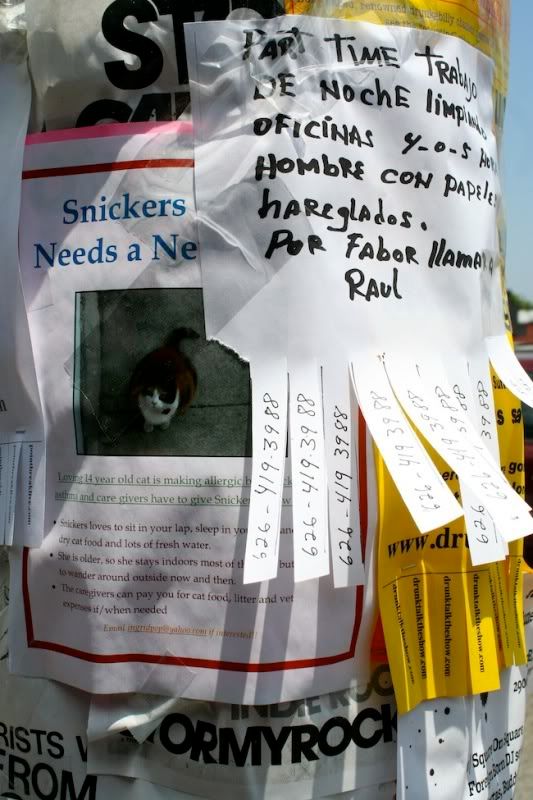 renowned
ST
PART TIME TRABAJO
DE NOCHE limpiando
OFICINAS Y-O-S
HOMBRE CON PAPELES
hareglados.
POR FABOR llamar A
RAUL
Snickers
Needs a Ne
Loving 14 year old cat is making allergic
asthmi and care givers have to give
• Snickers loves to sit in your lap, sleep in
dry cat food and lots of fresh water.
• She is older, so she stays indoors most of but
to wander around outside now and then.
• The caregivers can pay you for cat food, litter and vet
expenses if/when needed
Email ingridpop@yahoo.com if interested!!
626-419.3988
626-419.3988
626-419.3988
626-419-3988
626-419-3988
626-419-3988
www.dru
drunktalktheshow.com
drunktalktheshow.com
drunktalktheshow.com
INDIE ROC
ORMYROCK
RISTS
FROM
Square On Square
Foreign Born DJ